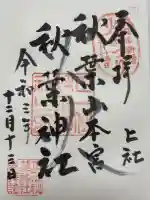 奉拝
上社
秋葉山本宮
秋葉神社
令和三年
十二月十三日